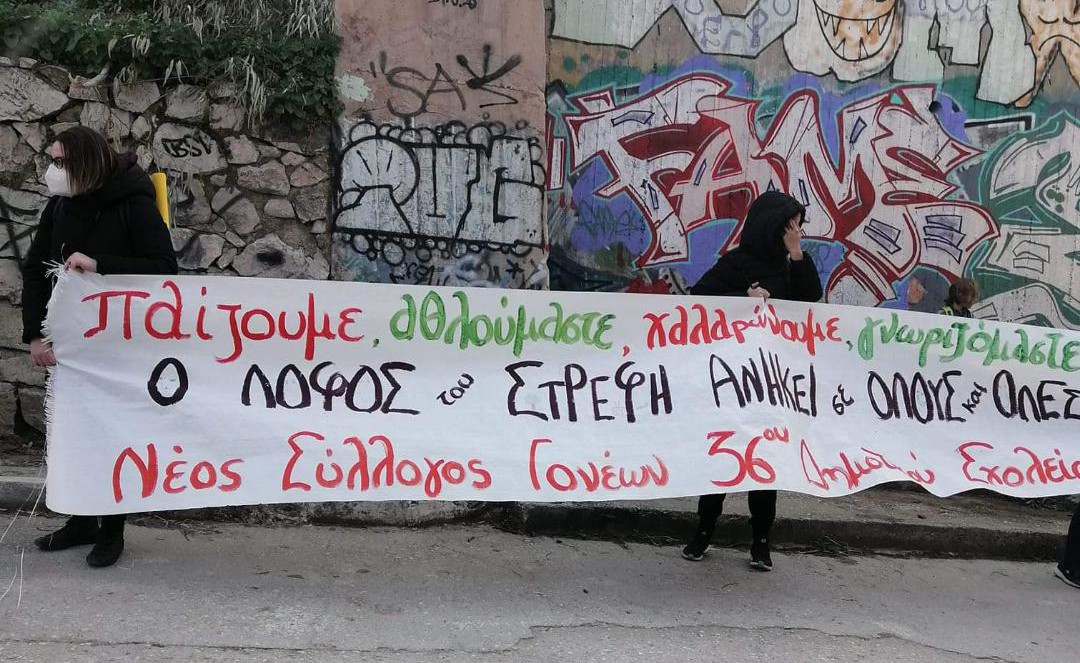 SAK
BST
FAME
Παίζουμε, αθλούμαστε, χαλαρώνουμε, γνωριζόμαστε
Ο ΛΟΦΟΣ του ΣΤΡΕΦΗ ΑΝΗΚΕΙ σε ΟΛΟΥΣ και ΟΛΕΣ
Νέος Σύλλογος Γονέων 36ου Δημοτικού Σχολεί